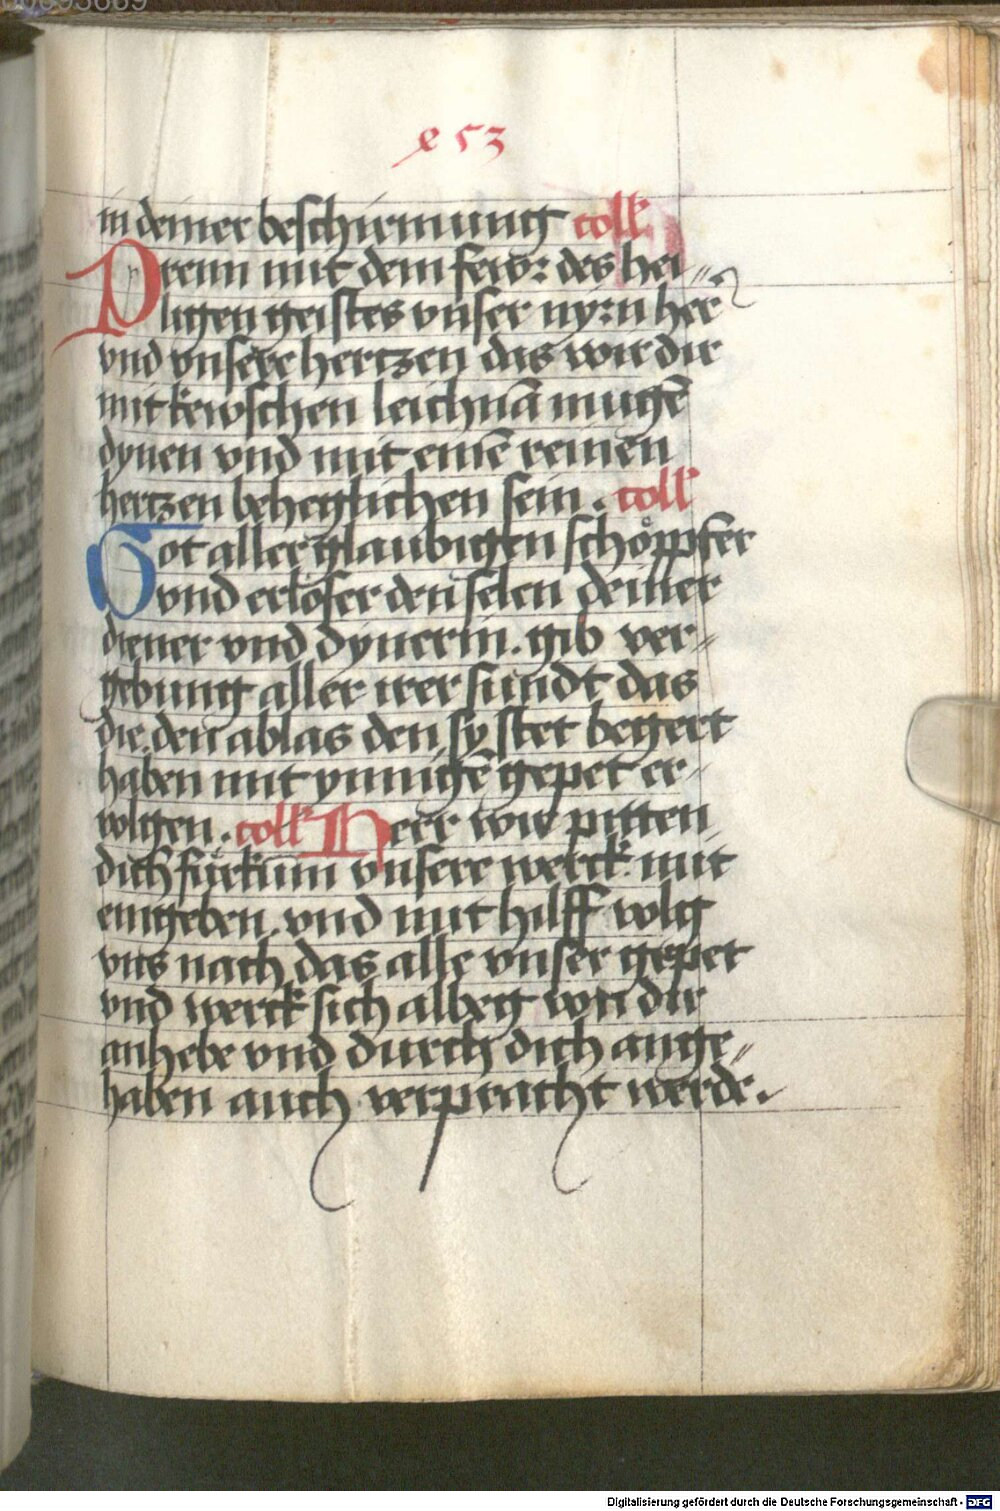 e 53
in deiner beschirmung coll
Prenn mit dem fewr des hei-
ligen geistes vnser nyrn her̄
vnd vnsere hertzen das wir dir
mit kewschen leichnā mugē
dynen vnd mit einē reinen
hertzen beheglichen sein . coll
Got aller glaubigen schöppfer
vnd erloser den selen deiner
diener vnd dynerin . gib ver-
gebung aller irer sundt das
die den ablas den sy stet begert
haben mit ynnigē gepet er-
volgen . coll Herr wir pitten
dich fürkum vnsere werck mit
eingeben . vnd mit hilff volg
vns nach das alle vnser gepet
vnd werck sich albeg von dir
anhebe vnd durch dich ange-
haben auch verpracht werde .
Digitalisierung gefördert durch die Deutsche Forschungsgemeinschaft - DFG